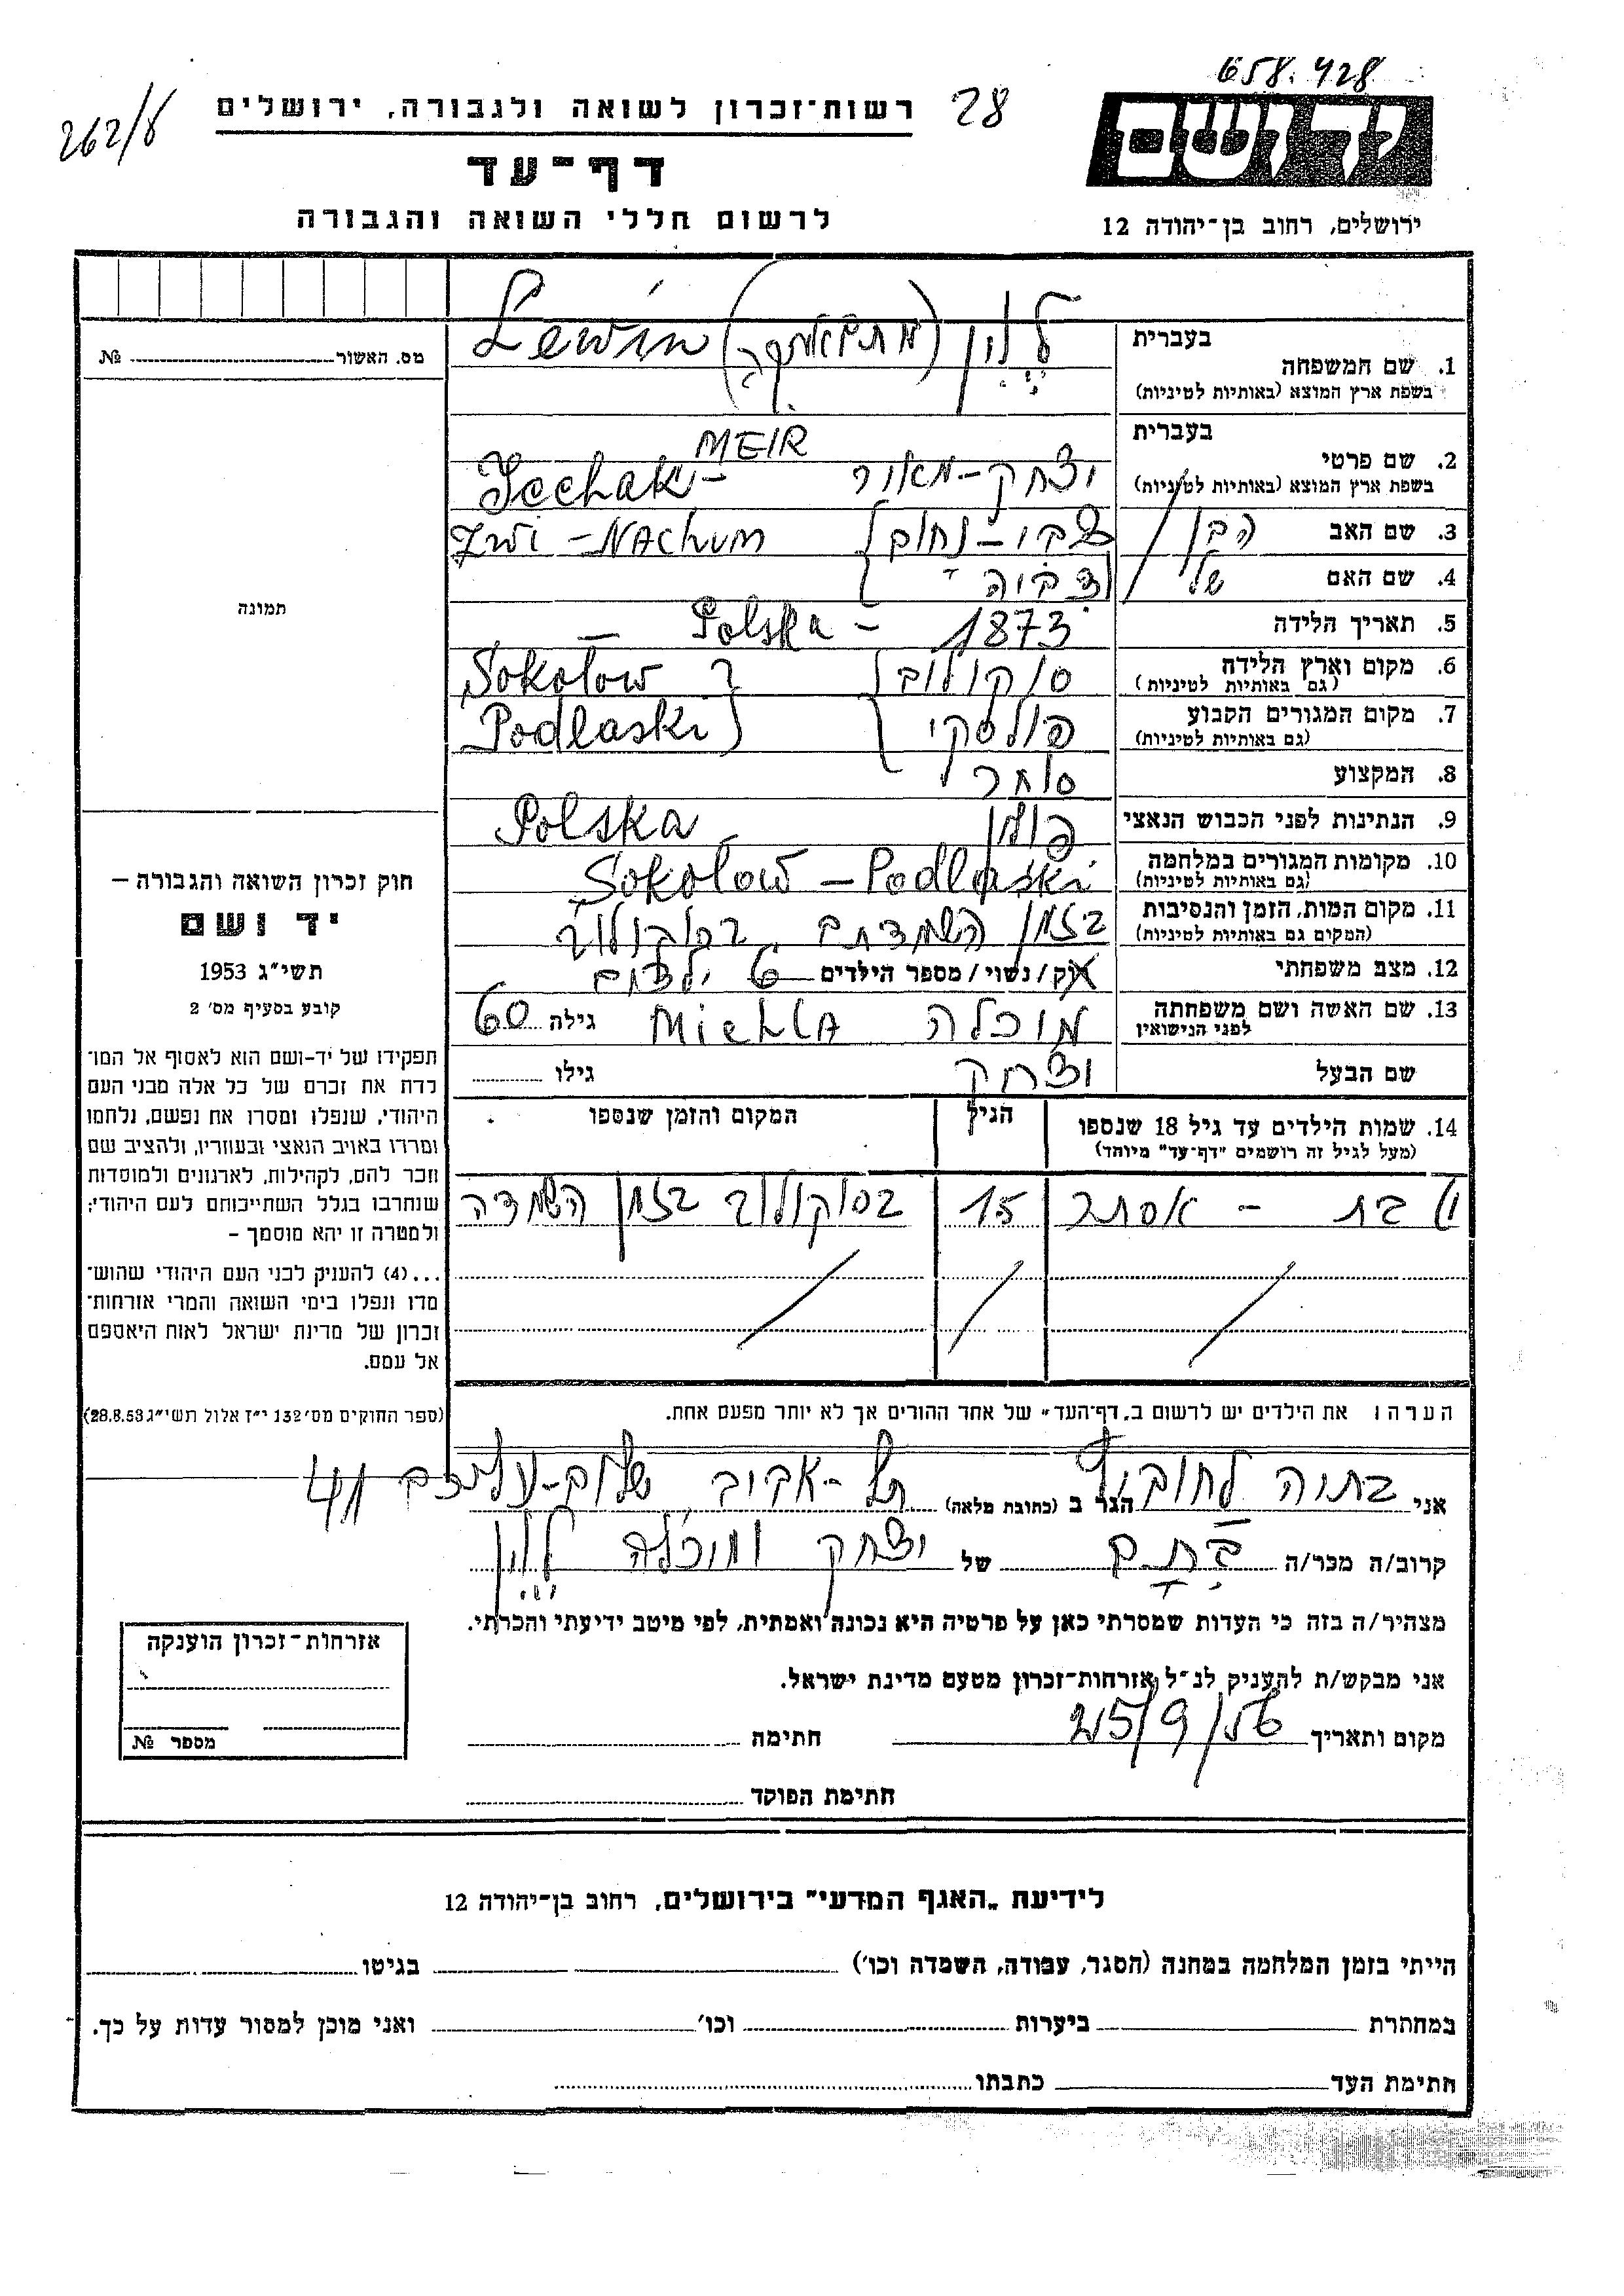 658.428
28
262/8
רשות־זכרון לשואה ולגבורה, ירושלים
דף־עד
לרשום חללי השואה והגבורה
יד ושם
ירושלים, רחוב בן־יהודה 12
מס. האשור № 
תמונה
חוק זכרון השואה והגבורה –
יד ושם
תשי״ג 1953
קובע בסעיף מס׳ 2
תפקידו של יד-ושם הוא לאסוף אל המו־
לדת את זכרם של כל אלה מבני העם
היהודי, שנפלו ומסרו את נפשם, נלחמו
ומרדו באויב הנאצי ובעוזריו, ולהציב שם
וזכר להם, לקהילות, לארגונים ולמוסדות
שנחרבו בגלל השתייכותם לעם היהודי;
ולמטרה זו יהא מוסמך –
...(4) להעניק לבני העם היהודי שהוש־
מדו ונפלו בימי השואה והמרי אזרחות־
זכרון של מדינת ישראל לאות היאספם
אל עמם.
(ספר החוקים מס׳ 132 י״ז אלול תשי״ג 28.8.53)
בעברית
1. שם המשפחה לוין Lewin
בשפת ארץ המוצא (באותיות לטיניות)
בעברית
2. שם פרטי יצחק-מאיר Icchak- MEIR
בשפת ארץ המוצא (באותיות לטיניות)
3. שם האב הבן צבי-נחום Zwi-NAchum
4. שם האם של צביה
5. תאריך הלידה 1873 - Polska -
6. מקום וארץ הלידה סוקולוב Sokołow
(גם באותיות לטיניות)
7. מקום המגורים הקבוע פודלסקי Podlaski
(גם באותיות לטיניות)
8. המקצוע סוחר
9. הנתינות לפני הכבוש הנאצי פולין Polska
10. מקומות המגורים במלחמה Sokołow – Podlaski
(גם באותיות לטיניות)
11. מקום המות, הזמן והנסיבות בזמן השמדתם בסוקולוב
(המקום גם באותיות לטיניות)
12. מצב משפחתי רוק/נשוי/מספר הילדים 6 ילדים
13. שם האשה ושם משפחתה מיכלה MichlA גילה 60
לפני הנישואין
שם הבעל יצחק גילו
14. שמות הילדים עד גיל 18 שנספו הגיל המקום והזמן שנספו
(מעל לגיל זה רושמים "דף־עד" מיוחד)
1) בת - אסתר 15 בסוקולוב בזמן השמדה
הערה: את הילדים יש לרשום ב„דף־העד״ של אחד ההורים אך לא יותר מפעם אחת.
אני בתיה הגר ב (כתובת מלאה) תל-אביב שלום-עליכם 41
קרוב/ה מכר/ה בתם של יצחק ומיכלה לוין
מצהיר/ה בזה כי העדות שמסרתי כאן על פרטיה היא נכונה ואמתית, לפי מיטב ידיעתי והכרתי.
אני מבקש/ת להעניק לנ״ל אזרחות־זכרון מטעם מדינת ישראל.
מקום ותאריך 25/9/56 חתימה
חתימת הפוקד
אזרחות־זכרון הוענקה
מספר №
לידיעת „האגף המדעי״ בירושלים, רחוב בן־יהודה 12
הייתי בזמן המלחמה במחנה (הסגר, עבודה, השמדה וכו׳) בגיטו
במחתרת ביערות וכו׳ ואני מוכן למסור עדות על כך.
חתימת העד כתבתו